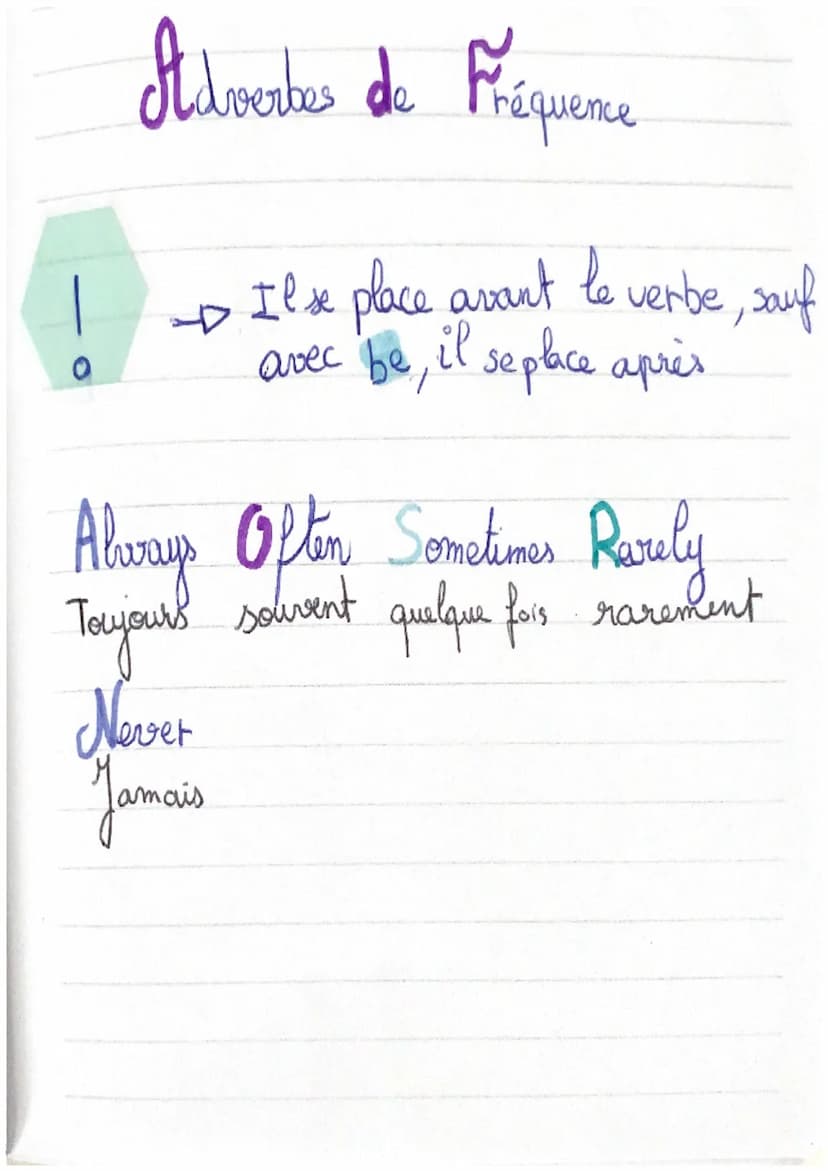 Adverbes de Fréquence
! → Il se place avant le verbe, sauf
avec be, il se place après
Always Often Sometimes Rarely
Toujours souvent quelque fois rarement
Never
Jamais